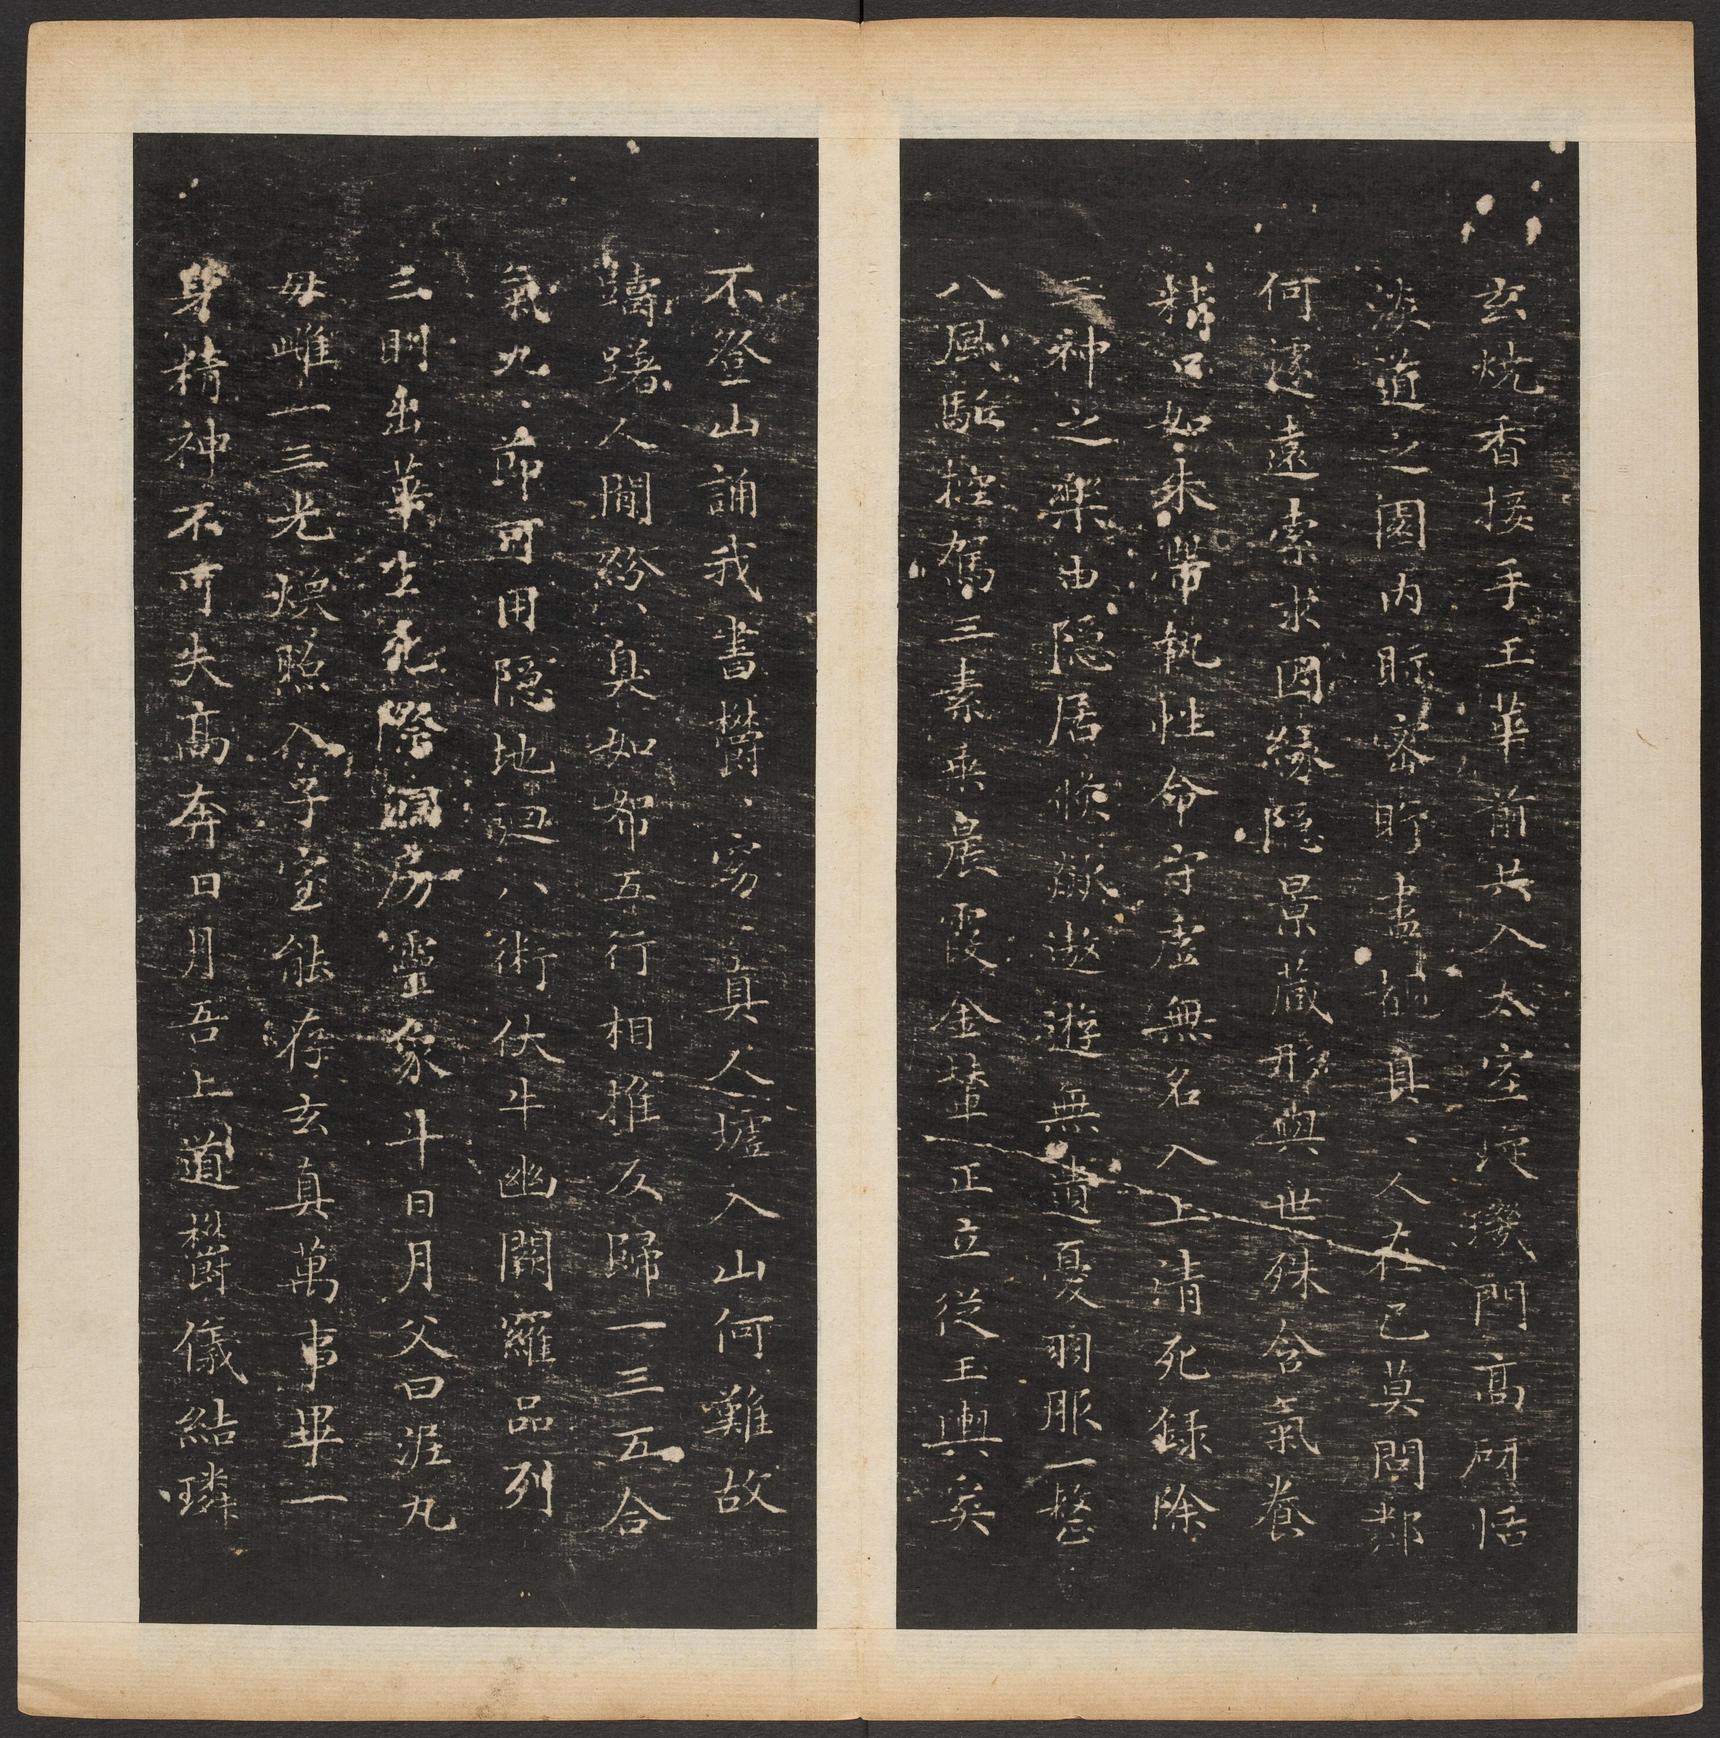 玄燒香接手玉華前共入太室琁璣門高研恬
淡道之園內眎密盻盡覩真、人在己莫問鄰
何遽遠索求因緣隱景藏形與世殊含氣養
精口如朱帶執性命守虛無名入上清死錄除
三神之樂由隱居倏欻遨遊無遺憂羽服一整
八風驅控駕三素乘晨霞金輦正立從玉輿矣
不登山誦我書欝、窈、真人墟入山何難故
躊躇人間紛、臭如帤五行相推反歸一三五合
氣九、節可用隱地迴八術伏牛幽闕羅品列
三明出華生死際洞房靈象斗日月父曰泥丸
母雌一三光煥照入子室能存玄真萬事畢一
身精神不可失高奔日月吾上道欝儀結璘